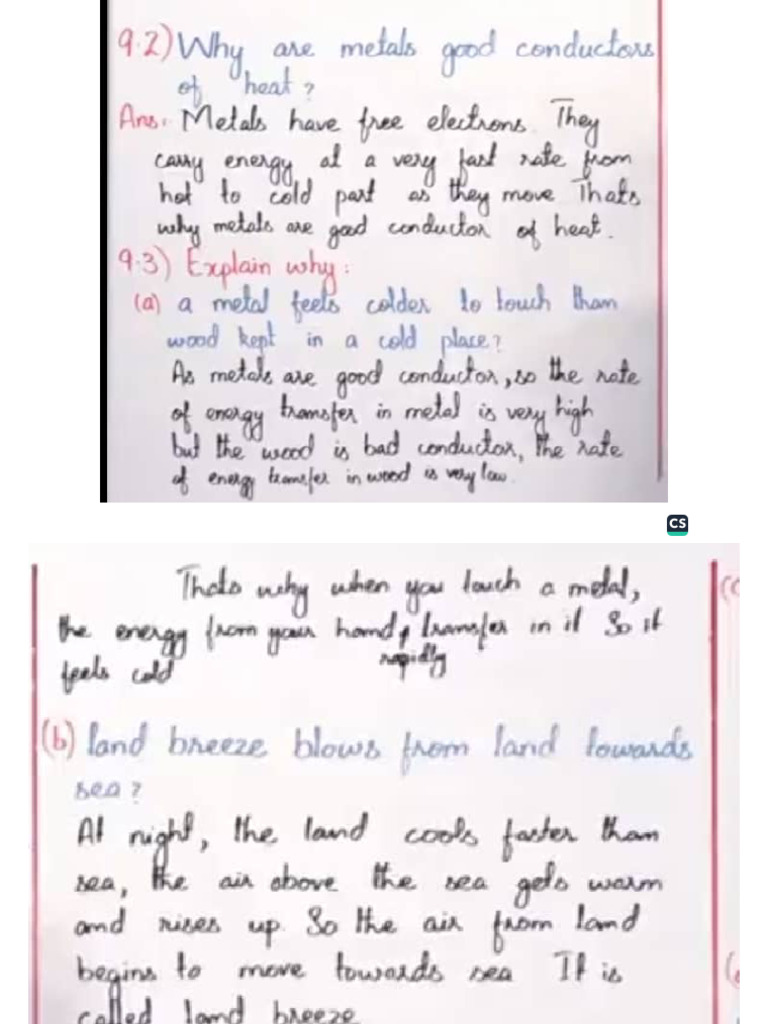 9.2) Why are metals good conductors
of heat?
Ans:. Metals have free electrons. They
carry energy at a very fast rate from
hot to cold part as they move Thats
why metals are good conductor of heat.
9.3) Explain why:
(a) a metal feels colder to touch than
wood kept in a cold place?
As metals are good conductor, so the rate
of energy transfer in metal is very high
but the wood is bad conductor, the rate
of energy transfer in wood is very low.
CS
Thats why when you touch a metal,
the energy from your hand, transfer in it So it
rapidly
feels cold
(b) land breeze blows from land towards
sea?
At night, the land cools faster than
sea, the air above the sea gets warm
and rises up. So the air from land
begins to move towards sea It is
called land breeze